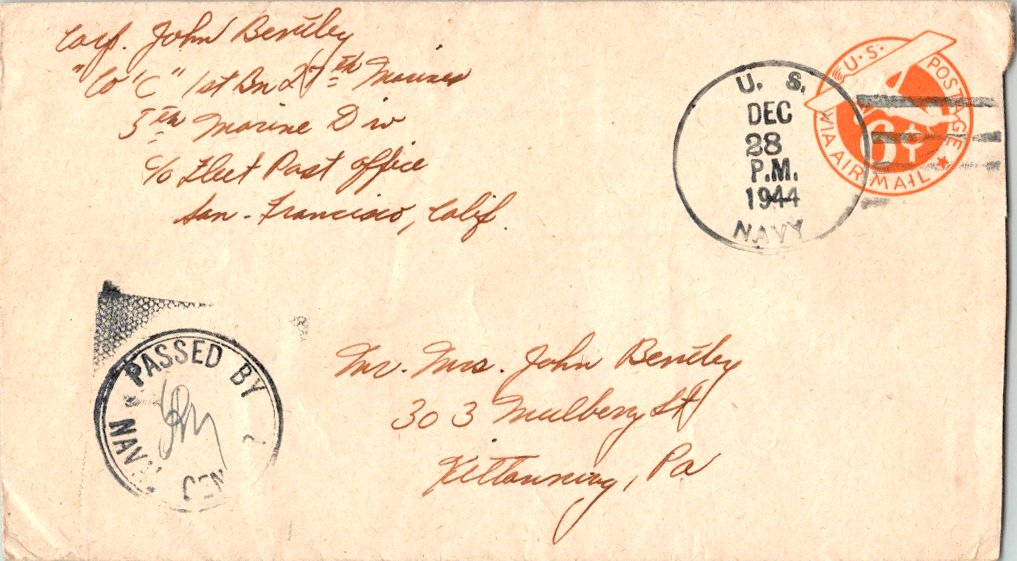 Corp. John Bentley
"Co "C" 1st Bn 27th Marines
5th Marine Div
c/o Fleet Post Office
San. Francisco, Calif.
U. S.
DEC
28
P.M.
1944
NAVY
U.S. POSTAGE
6¢
VIA AIR MAIL
PASSED BY
NAVAL CEN
Mr. Mrs. John Bentley
303 Mulberry St
Kittanning, Pa